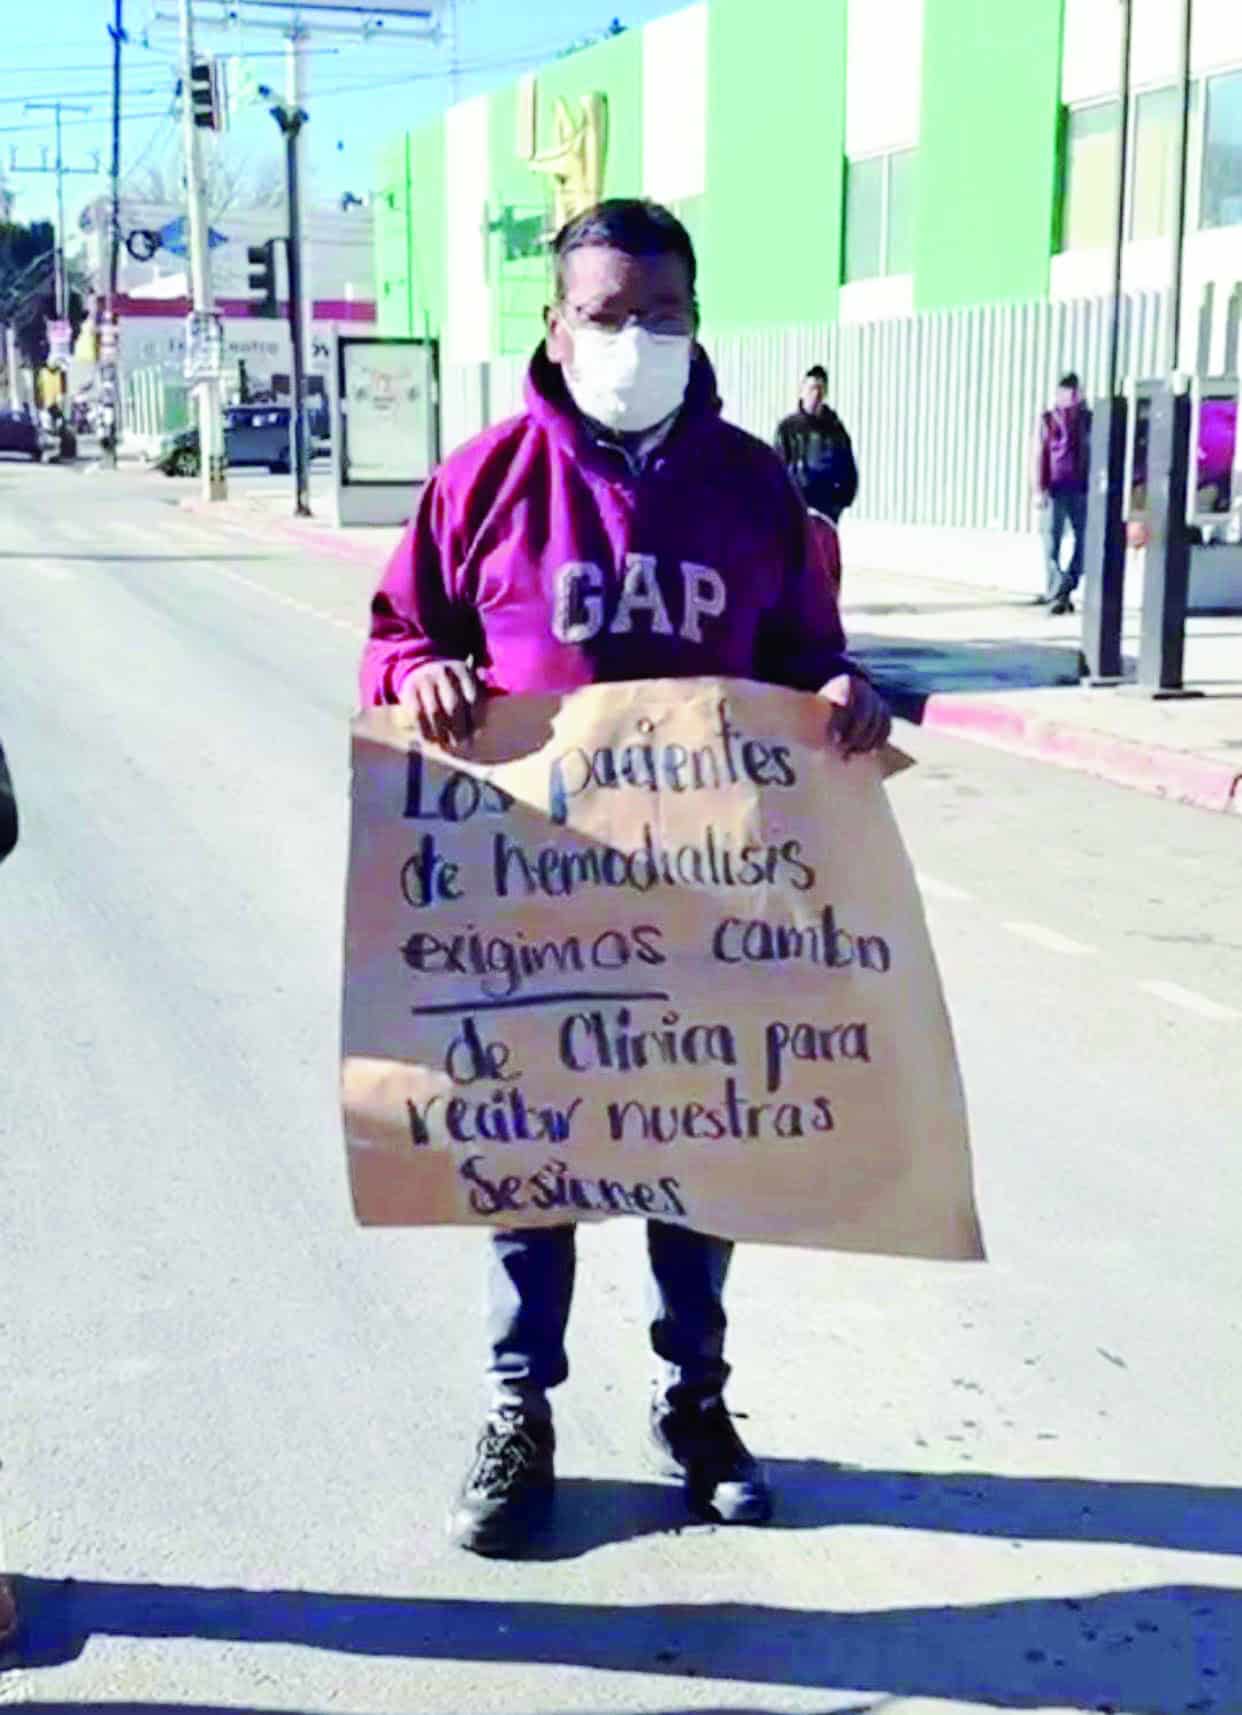 GAP
Los pacientes
de hemodialisis
exigimos cambio
de Clinica para
recibir nuestras
Sesiones